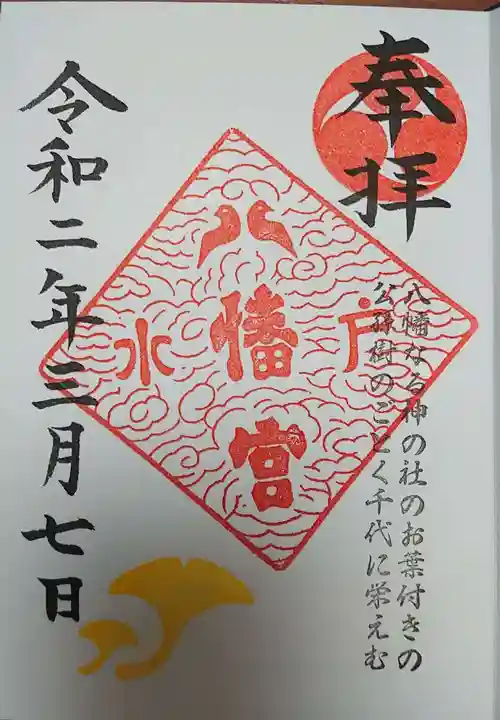 奉拝
八幡なる神の社のお葉付きの
公孫樹のごとく千代に栄えむ
水戸
八幡宮
令和二年三月七日